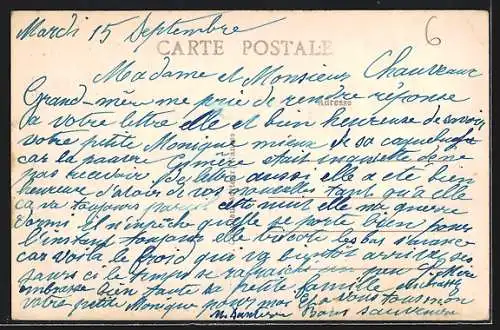 Mardi 15 Septembre
CARTE POSTALE
Madame et Monsieur Chauveau
Grand-mère me prie de rendre réponse
Adresse
a votre lettre elle et bien heureuse de savoir
votre petite Monique mieux de sa coqueluche
car la pauvre était inquiette de ne
pas recevoir de lettre aussi elle a été bien
heureuse d'avoir de vos nouvelles tant qu'a elle
ca va toujours cette nuit elle na guerre
dormi Il n'impêche quelle se porte bien pour
l'instant toujours elle tricote les bas s'avance
car voila le froid qui va bientôt arrivé ses
jours ci le temps se rafraichi un peu
embrasse bien toute sa petite famille
votre petite Monique pour moi a vous tous mon
bons souvenirs